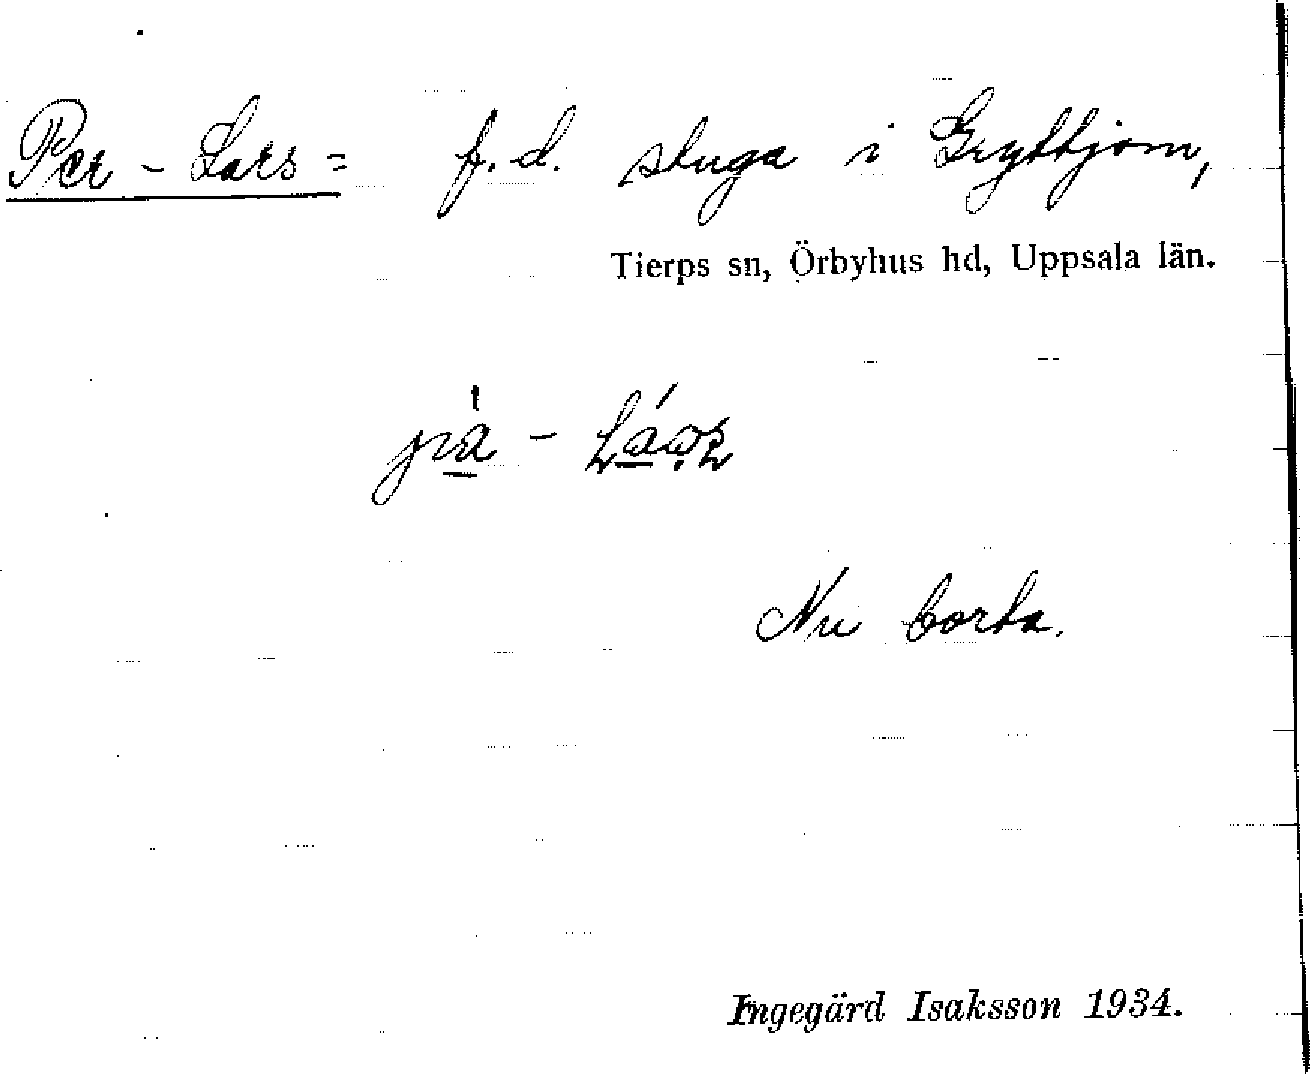 Per-Lars= f.d. stuga i Gryttjom,
Tierps sn, Örbyhus hd, Uppsala län.
Nu borta.
Ingegärd Isaksson 1934.